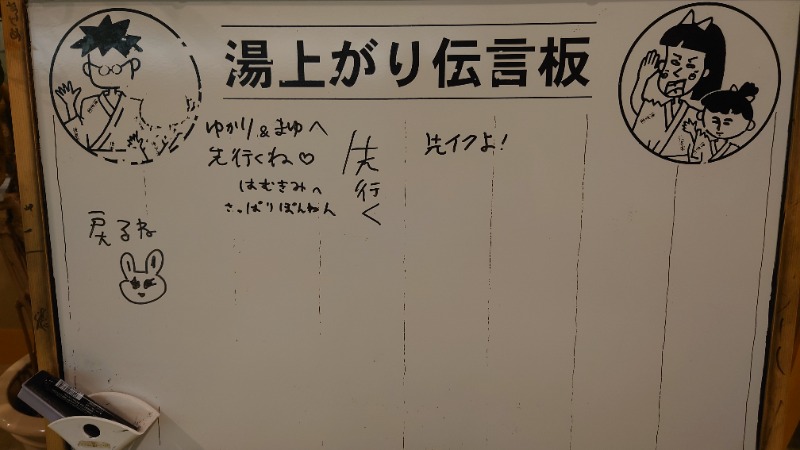 湯上がり伝言板
ゆかり&まゆへ
先行くね♡
はむきみへ
さっぱりぽんわん
先行く
先イクよ!
戻るね